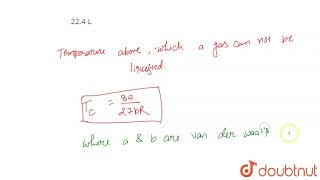 22.4 L
Temperature above, which a gas can not be
liquefied.
Tc = 8a / 27bR
where a & b are van der waal's
doubtnut